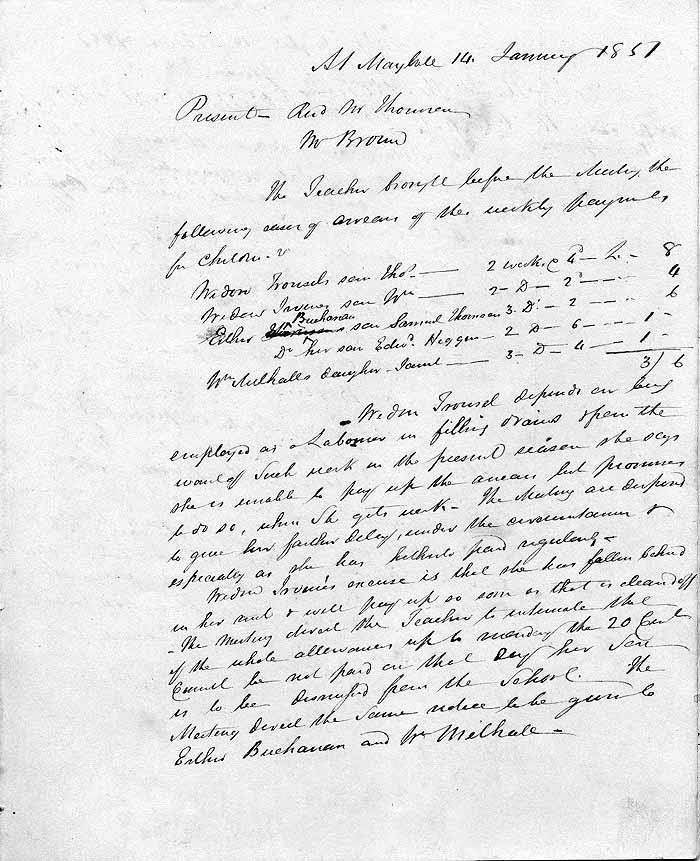 At Maybole 14. January 1851
Present - Revd Mr Thomson
Mr Brown
The Teacher brought before the Meeting the
following cases of arrears of the weekly payments
for Children. -
Widow Trousels son Thos. — 2 weeks @ 4d — 8
Widow Irvines son Wm — 2 - Do - 2d - 4
Esther Buchanan son Samuel Thomson 3. Do - 2 - 6
Do her son Edwd. Heggen - 2 Do - 6 - 1 -
Wm Milhalls daughter Janet — 3 - Do - 4 - 1 -
3/6
Widow Trousel depends on being
employed as a Labourer in filling drains upon the
want of such work in the present season she says
she is unable to pay up the arrears but promises
to do so, when she gets work - The Meeting are disposed
to give her farther delay, under the circumstances &
especially as she has hitherto paid regularly -
Widow Irvines excuse is that she has fallen behind
in her rent & will pay up so soon as that is cleared off
- The Meeting direct the Teacher to intimate that
if the whole allowances up to monday the 20 Curt
Currt be not paid on that day her son
is to be dismissed from the School. The
Meeting direct the same notice to be given to
Esther Buchanan and Wm Milhall -